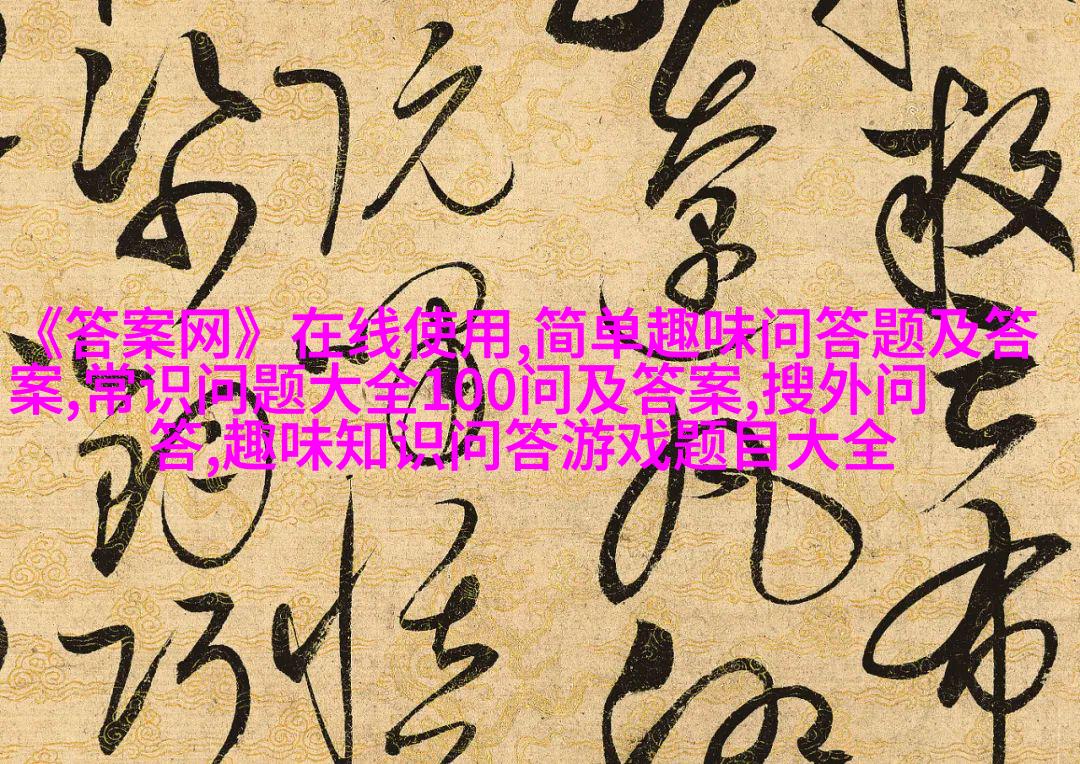 《答案网》在线使用,简单趣味问答题及答
案,常识问题大全100问及答案,搜外问
答,趣味知识问答游戏题目大全
叛亡布
丸
阮嘯恬
紙鈞巧